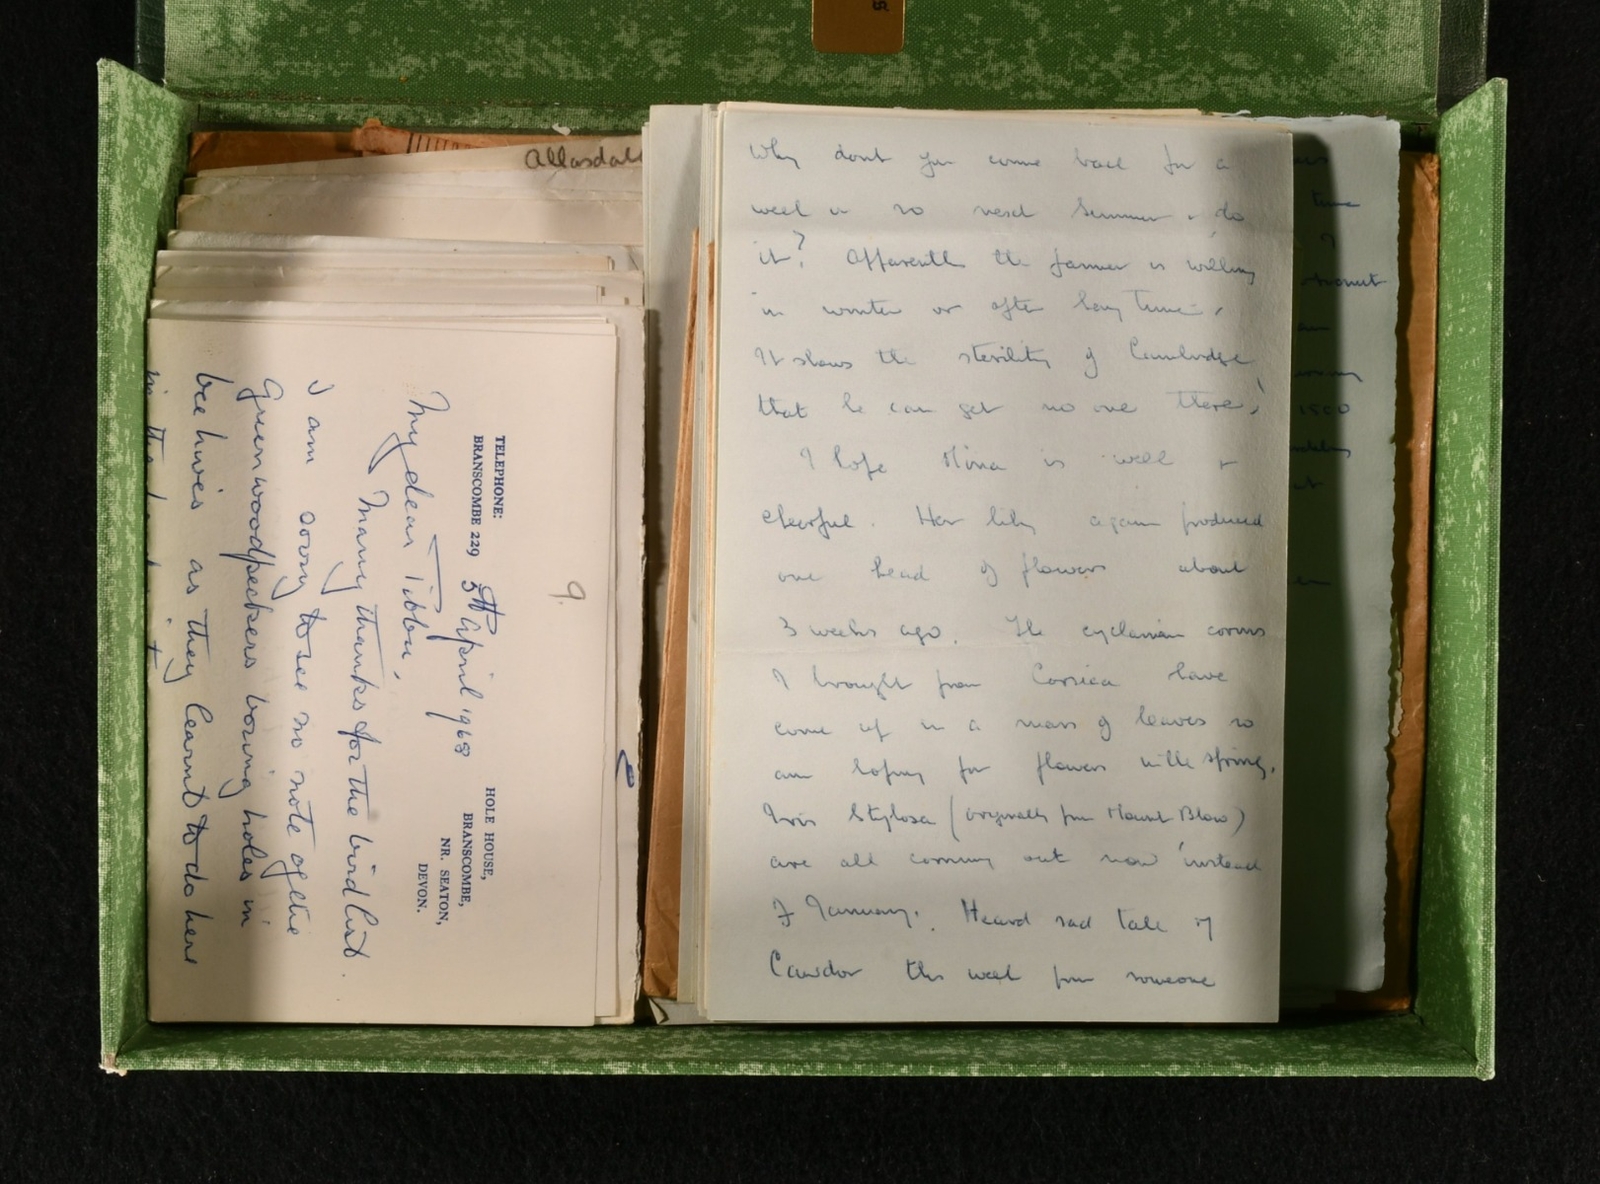 Allasdale
9.
TELEPHONE:
BRANSCOMBE 229
HOLE HOUSE,
BRANSCOMBE,
NR. SEATON,
DEVON.
5th April 1968
My dear Tibbu,
Many thanks for the bird list.
I am sorry to see no note of the
Green woodpeckers boring holes in
bee hives as they learnt to do here
in the
Why dont you come back for a
week or so next Summer & do
it? Apparently the farmer is willing
in winter or after hay time.
It shows the sterility of Cambridge
that he can get no one there!
I hope Mina is well &
cheerful. Her lily again produced
one head of flowers about
3 weeks ago. The cyclamen corms
I brought from Corsica have
come up in a mass of leaves so
am hoping for flowers in the spring.
Iris Stylosa (originally from Mount Blow)
are all coming out now instead
of January. Heard sad tale of
Cawdor this week from someone
time
1500